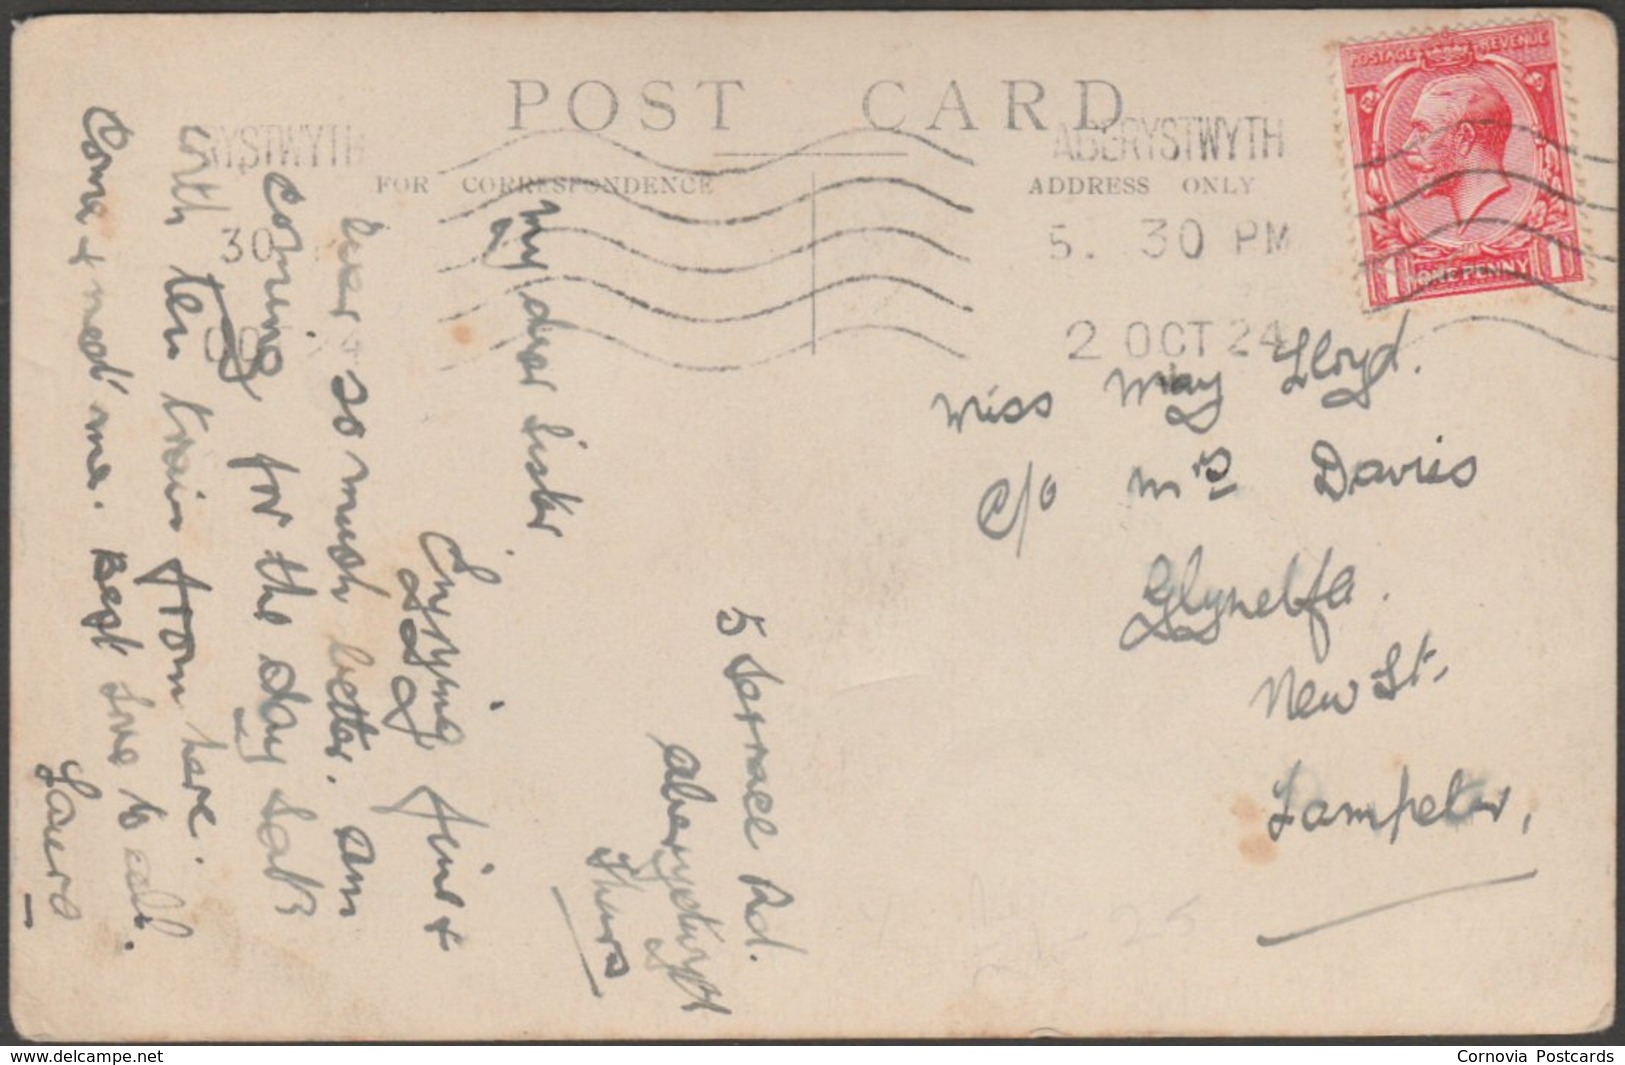 POST CARD
FOR CORRESPONDENCE
ADDRESS ONLY
POSTAGE REVENUE
1 ONE PENNY 1
ABERYSTWYTH
5. 30 PM
2 OCT 24
RYSTWYTH
30
Miss May Lloyd.
c/o Mrs Davies
Glynelfa.
New St.
Lampeter,
5 Terrace Rd.
Aberystwyth
Thurs
My dear Sister.
Enjoying fine &
ever so much better. Am
coming for the day Sat
with ten train from here.
Come & meet me. Best love to all.
Laura
Cornovia Postcards
http://www.delcampe.net